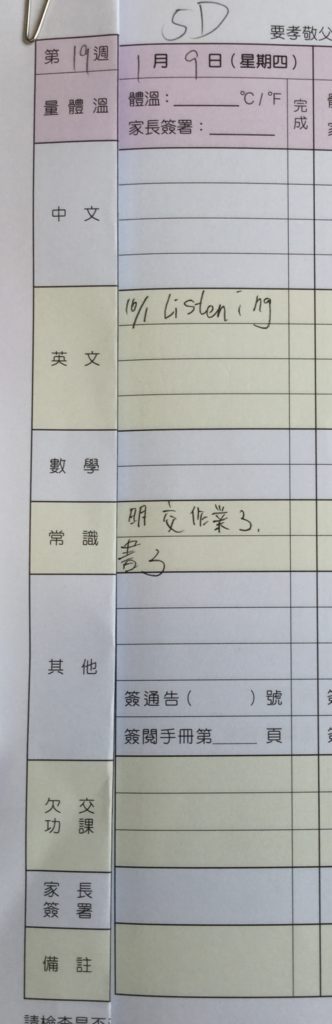 5D
要孝敬父
第19週
1月9日(星期四)
量體溫
體溫：______°C/°F
家長簽署：______
完成
中文
英文
10/1 Listening
數學
常識
明交作業3.
書3
其他
簽通告（　　）號
簽閱手冊第____頁
欠交
功課
家長
簽署
備註